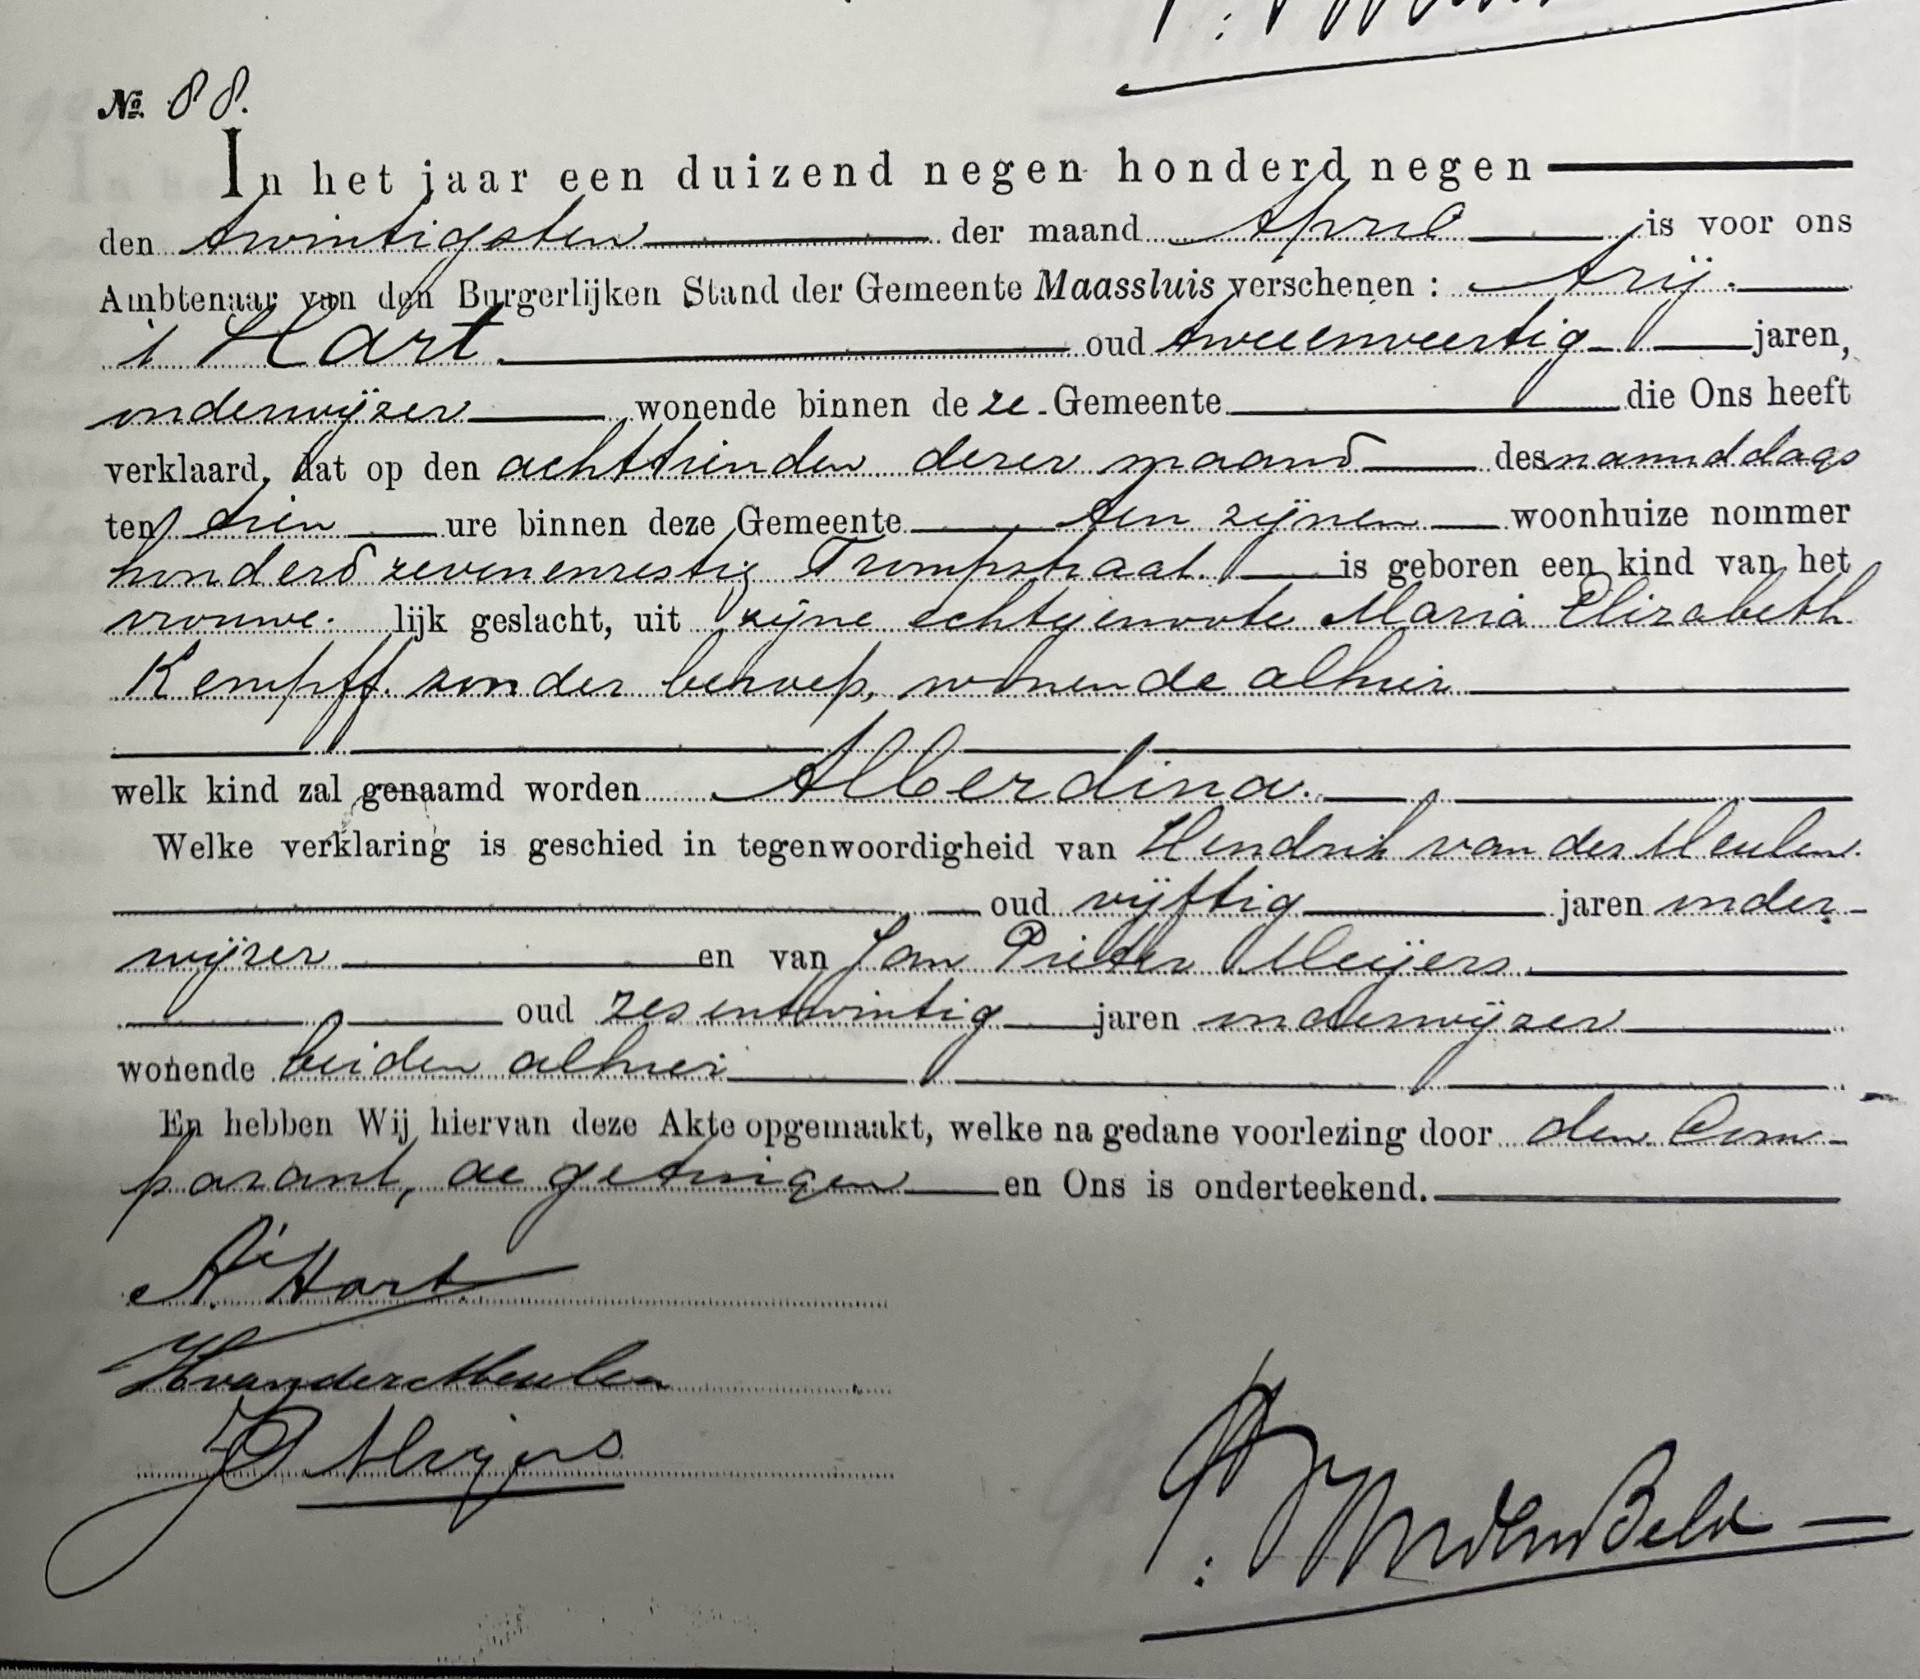 No. 88.
In het jaar een duizend negen honderd negen
den twintigsten der maand April is voor ons
Ambtenaar van den Burgerlijken Stand der Gemeente Maassluis verschenen : Arij
't Hart oud tweeenveertig jaren,
onderwijzer wonende binnen deze Gemeente die Ons heeft
verklaard, dat op den achttienden dezer maand des namiddags
ten tien ure binnen deze Gemeente ten zijnen woonhuize nommer
honderd zevenenzestig Trompstraat. is geboren een kind van het
vrouwe- lijk geslacht, uit zijne echtgenoote Maria Elizabeth
Kempff. zonder beroep, wonende alhier
welk kind zal genaamd worden Alberdina.
Welke verklaring is geschied in tegenwoordigheid van Hendrik van der Meulen
oud vijftig jaren onder-
wijzer en van Jan Pieter Meijers
oud zesentwintig jaren onderwijzer
wonende beiden alhier
En hebben Wij hiervan deze Akte opgemaakt, welke na gedane voorlezing door den Com-
parant, de getuigen en Ons is onderteekend.
A 't Hart
HvanderMeulen
JP Meijers